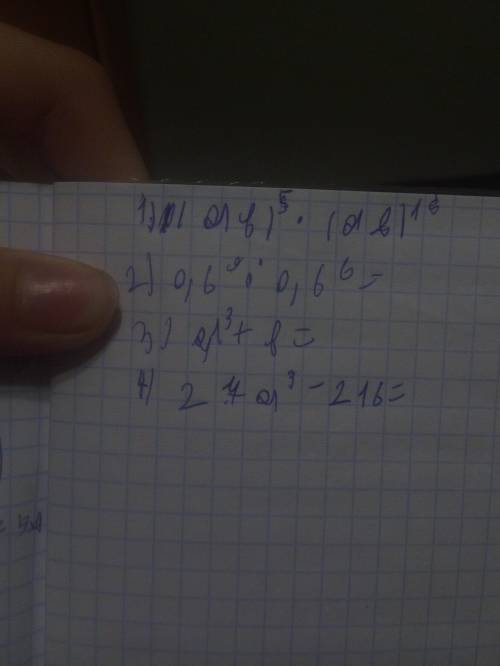 1) (ab)⁵ · (ab)¹⁶
2) 0,6⁹ : 0,6⁶ =
3) a³ + b =
4) 27a³ - 216 =